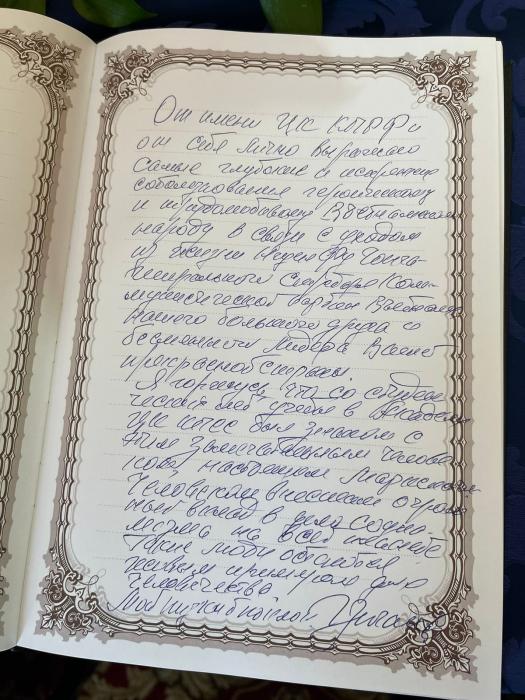 От имени ЦК КПРФ и
от себя лично выражаю
самые глубокие и искренние
соболезнования героическому
и трудолюбивому Вьетнамскому
народу в связи с уходом
из жизни Нгуен Фу Чонга
Генерального секретаря Ком-
мунистической партии Вьетнама
нашего большого друга и
лидера Вашей
прекрасной страны.
Я горжусь, что со студен-
ческих лет учёбы в Академии
был знаком с
этим замечательным челове-
ком, настоящим марксистом
Человеком вносившим огром-
ный вклад в дело социа-
лизма на всей планете
Такие люди остаются
живым примером для
человечества.